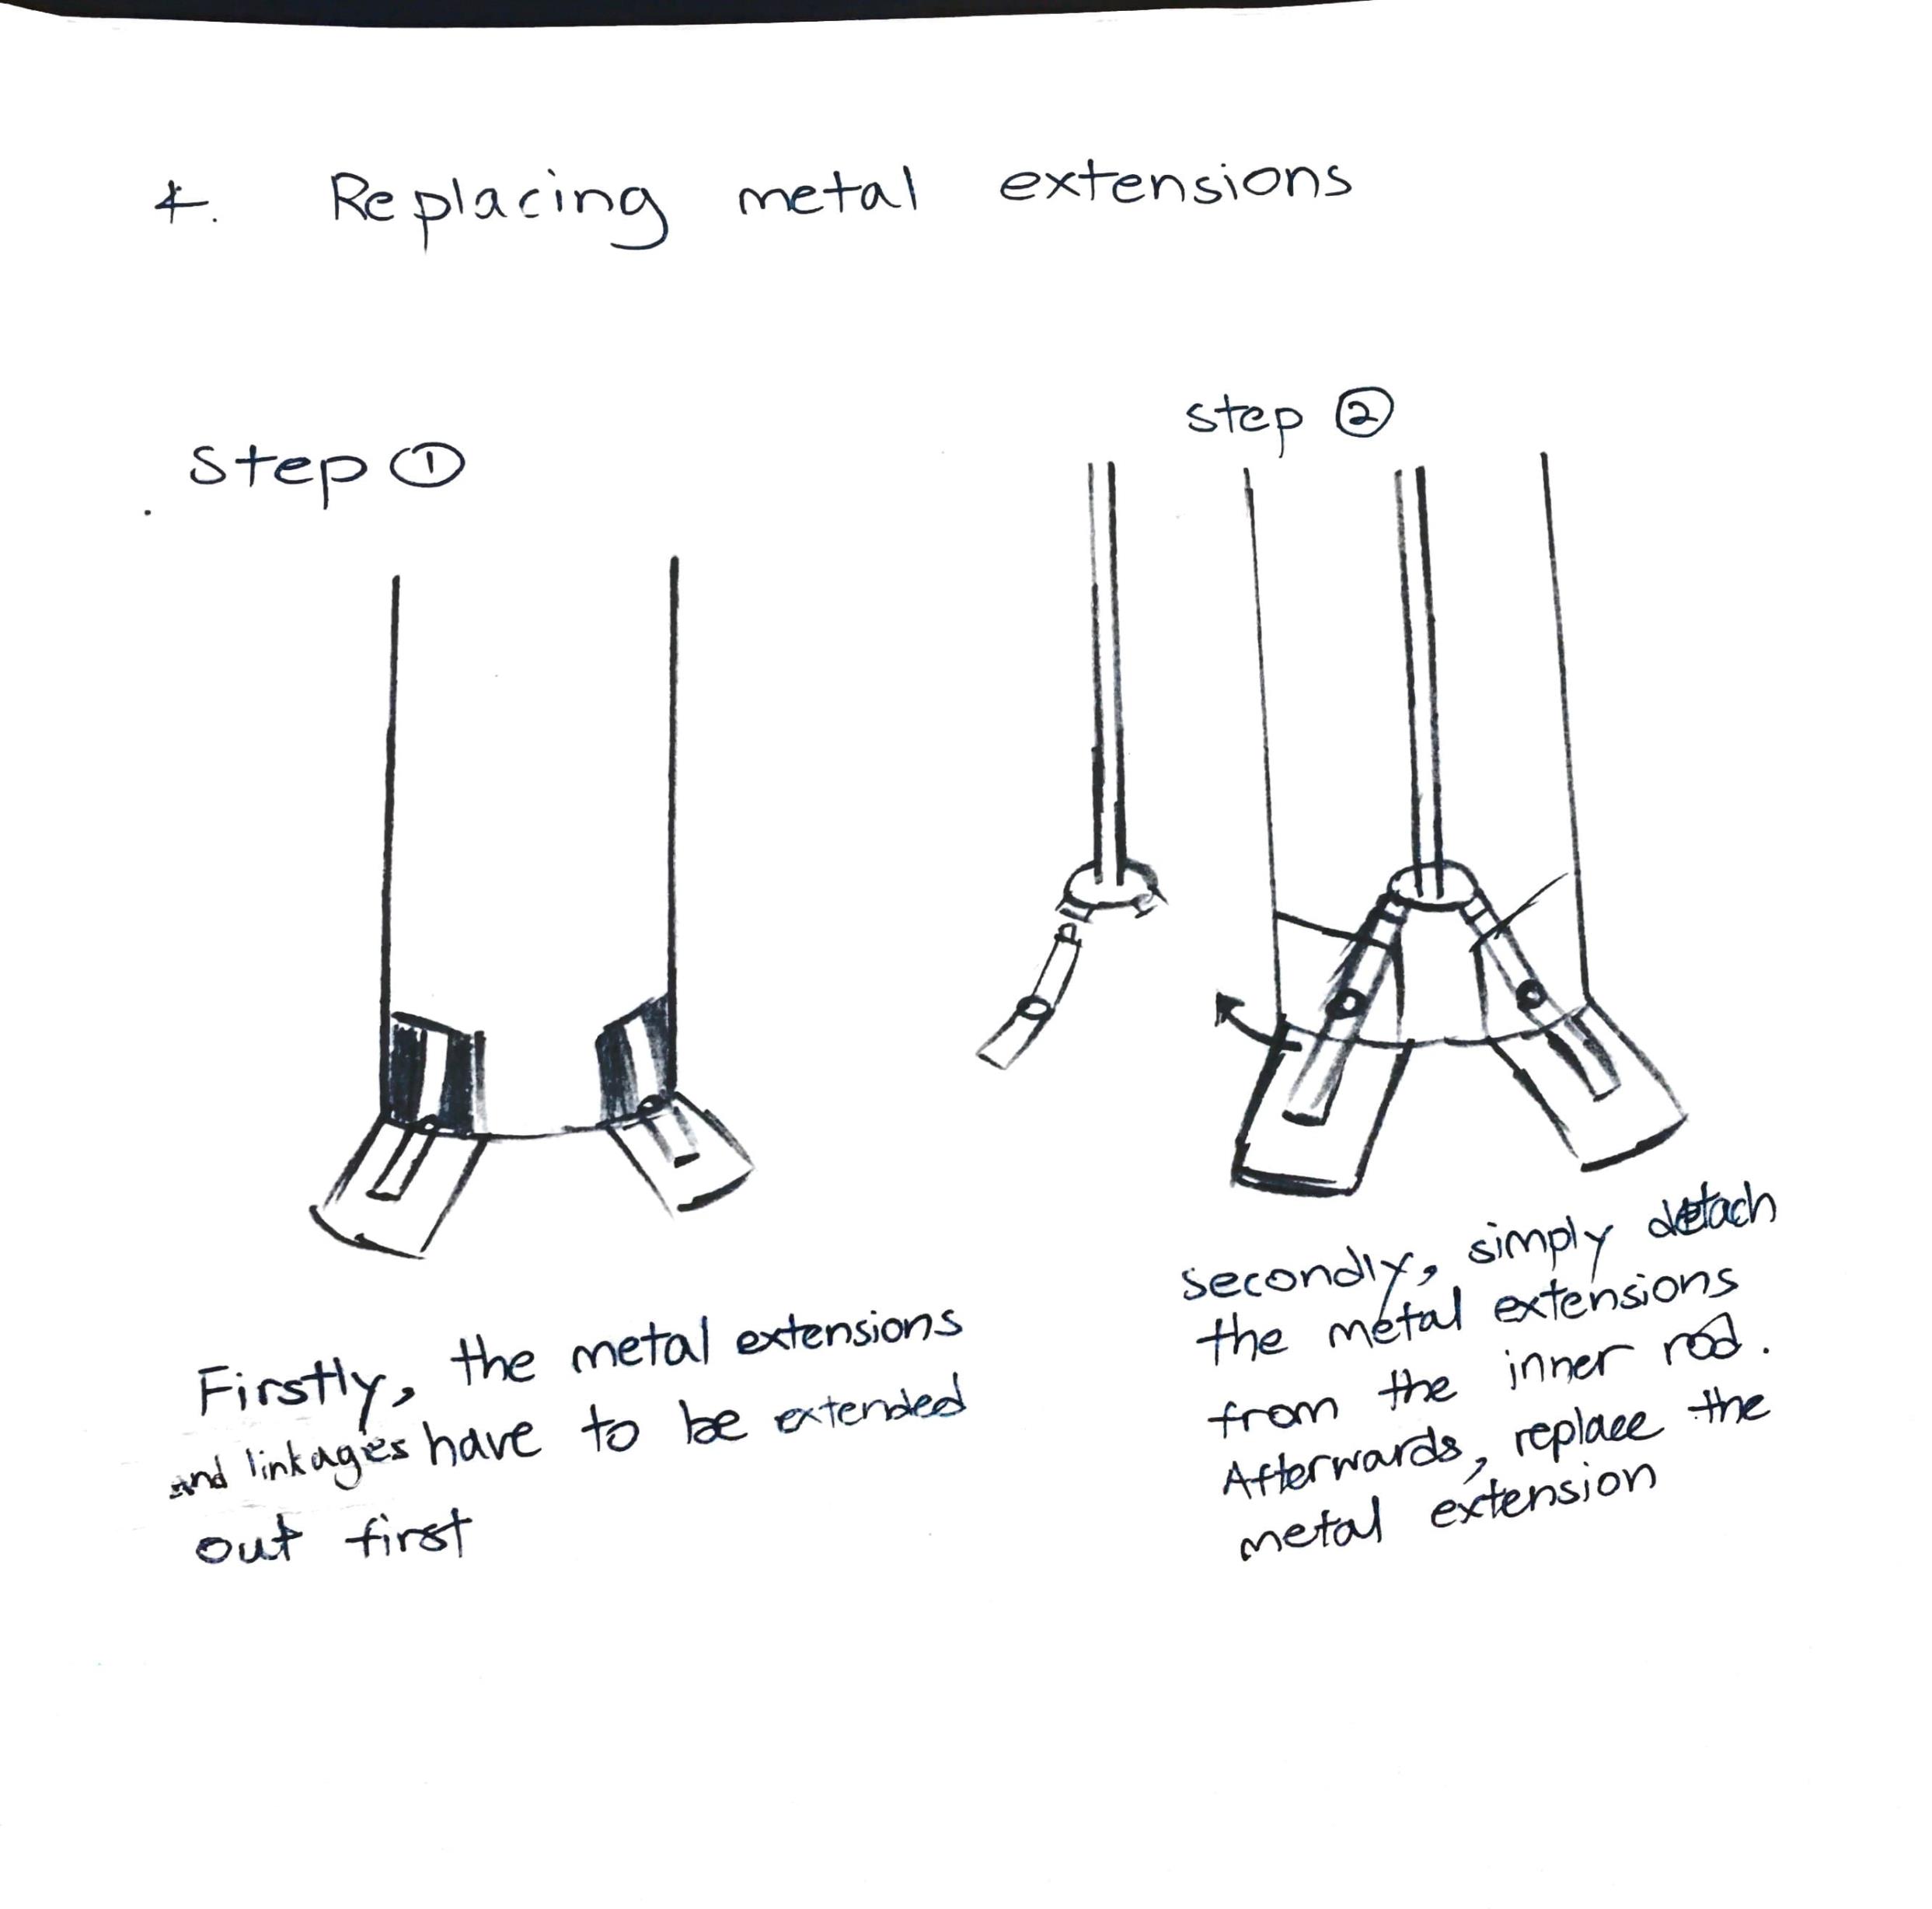 4. Replacing metal extensions
Step ①
Firstly, the metal extensions
and linkages have to be extended
out first
step ②
secondly, simply detach
the metal extensions
from the inner rod.
Afterwards, replace the
metal extension